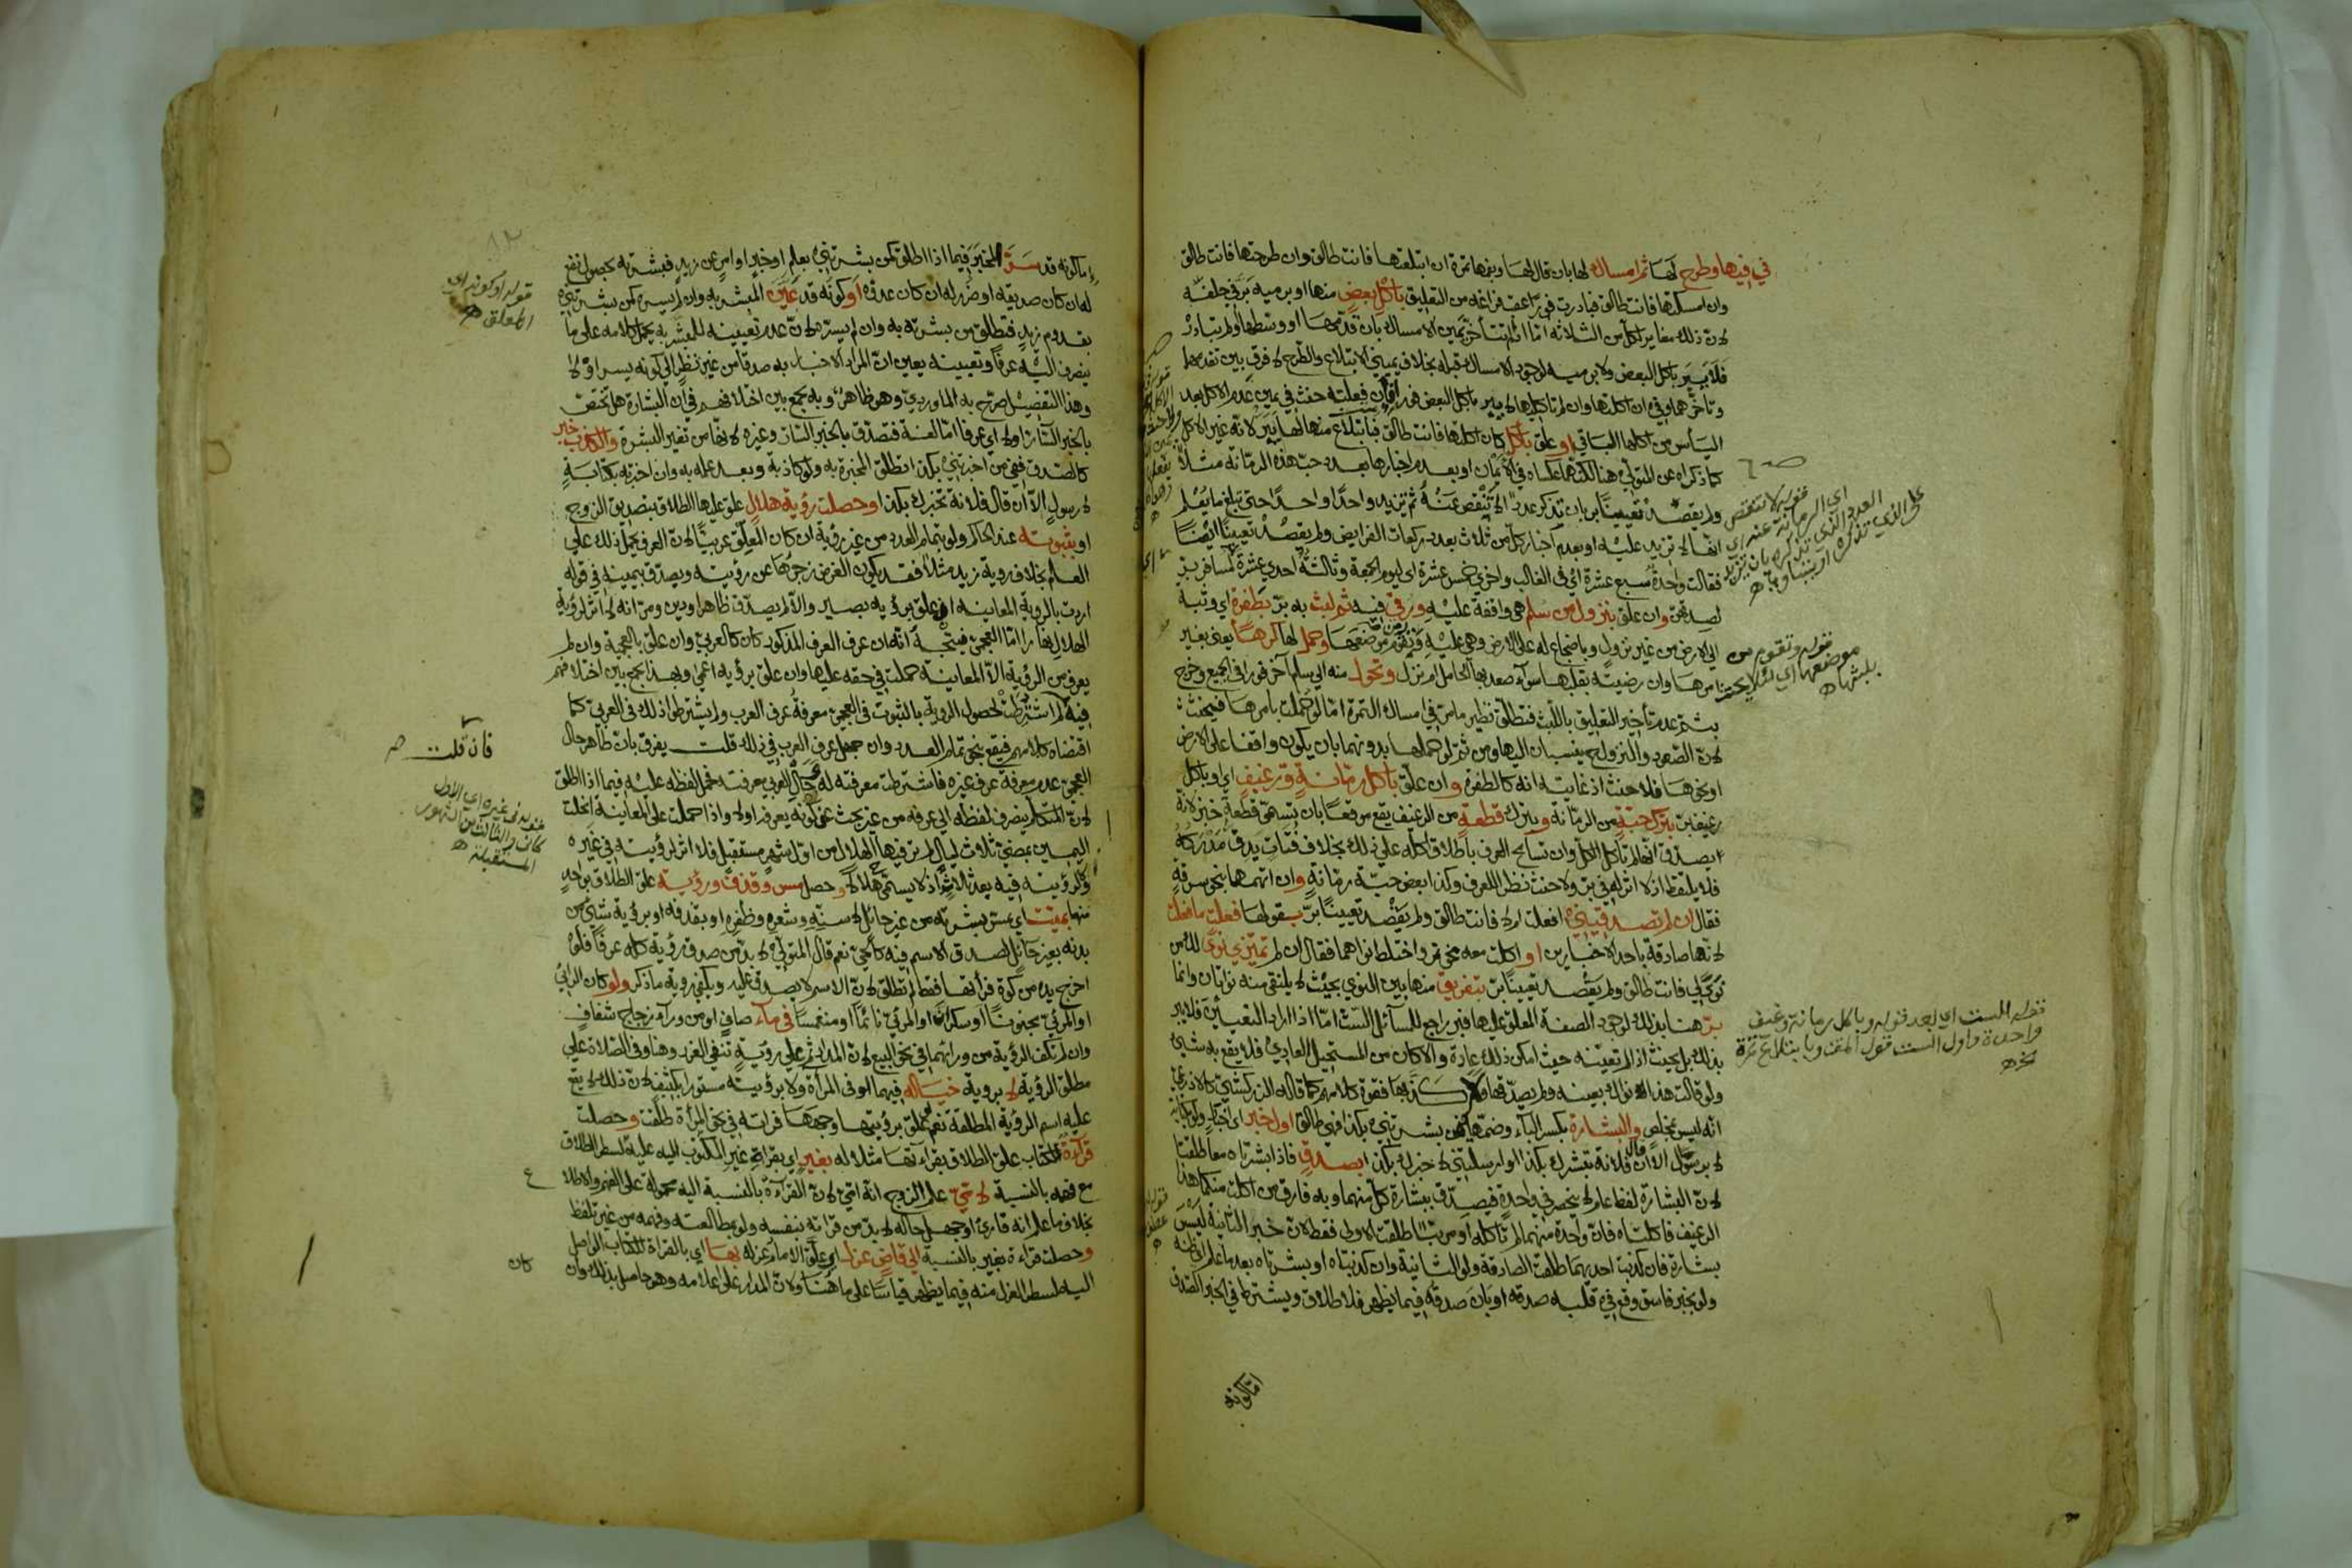 في فيها وطرح لها ثم امساك لها بان قال لها وبفمها تمرة ان ابتلعتها فانت طالق وان طرحتها فانت طالق
وان امسكتها فانت طالق فبادرت فورا عقب فراغه من التعليق باكل بعض منها او برميه بر في حلفه
لان ذلك مغاير لكل من الثلاثة اما اذا لم تتأخر يمين الامساك بان قدمها او وسطها او لم تبادر
فلا يبر باكل البعض ولا برميه لوجود الامساك قبله بخلاف يميني الابتلاع والطرح لا فرق بين تقدمهما
وتأخرهما وفي ان اكلتها وان لم تاكليها لا يبر باكل البعض فان فعلته حنث في يمين عدم الاكل بعد
اليأس من اكلها الباقي او علق باكل كان اكلتها فانت طالق فبابتلاع منها لها يبر لانه غير الاكل
كما ذكراه عن المتولي هنا لكنهما عكساه في الايمان او بعدم اخبارها بعدد حب هذه الرمانة مثلا
ولم يقصد تعيينا بر بان تذكر عددا لا تنقص عنه ثم تزيد واحدا واحدا حتى تبلغ ما يعلم
انها لا تزيد عليه او بعدم اخبار كل من ثلاث بعدد ركعات الفرايض ولم يقصد تعيينا ايضا
فقالت واحدة سبع عشرة اي في الغالب واخرى خمس عشرة اي ليوم الجمعة وثالثة احدي عشرة لمسافر بر
لصدقهن وان علق بنزول من سلم هي واقفة عليه ورقي فيه ثم لبث به بر بطفرة اي وثبة
الي الارض من غير نزول وباضجاع له على الارض وهي عليه وتقوم من موضعها وحمل لها كرها يعني بغير
امرها وان رضيته بقلبها سواء صعد بها الحامل ام نزل وتحول منه الي سلم آخر فورا في الجميع وخرج
بثم عدم تأخير التعليق باللبث فتطلق نظير ما مر في امساك التمرة اما لو حملت بامرها فيحنث
لان الصعود والنزول ينسبان اليها ومن ثم لو حملها بدونهما بان يكون واقفا على الارض
او نحوها فلا حنث اذ غايته انه كالطفرة وان علق باكل رمانة ورغيف اي او باكل
رغيف بر بترك حبة من الرمانة وبترك قطعة من الرغيف يقع موقعا بان تسمى قطعة خبز لانه
يصدق انها لم تأكل الكل وان تسامح العرف باطلاق اكله علي ذلك بخلاف فتات يدق مدركه
فلا يلتقط اذ لا اثر له في بر ولا حنث نظرا للعرف وكذا بعض حبة رمانة وان اتهمها بنحو سرقة
فقال ان لم تصدقيني افعلت ام لا فانت طالق ولم يقصد تعيينا بر بقولها فعلت ما فعلت
لانها صادقة باحد الاخبارين او اكلت معه نحو تمر واختلط نواهما فقال ان لم تميزي نوى كل من
نوى لي فانت طالق ولم يقصد تعيينا بر بتفريق منها بين النوى بحيث لا يلتقي منه نواتان وانما
بر هنا بذلك لوجود الصفة المعلق عليها فبر راجع للمسائل الست اما اذا اراد التعيين فلا يبر
بذلك بل يحنث اذا لم تعينه حيث امكن ذلك عادة والا كان من المستحيل العادي فلا يقع به شيء
ولو قالت هذا نواك بعينه ولم يصدقها
انه ليس بمخلص والبشارة بكسر الباء وضمها كمن بشرتني بكذا فهي طالق اول خبر اي اخبار ولو بكتابة
لا برسول الا ان قال فلانة تبشرك بكذا الو ارسلتني لاخبرك بكذا بصدق فاذا بشرتاه معا طلقتا
لان البشارة لفظ عام لا ينحصر في واحدة فيصدق ببشارة كل منهما وبه فارق من اكلت منكما هذا
الرغيف فاكلتاه فان واحدة منهما لم تأكله او مرتبا طلقت الاولى فقط لان خبر الثانية ليس
بشارة فان كذبت احديهما طلقت الصادقة ولو الثانية وان كذبتاه او بشرتاه بعد ما علم او ظنه
ولو بخبر فاسق وقع في قلبه صدقه او بان صدقه فيما يظهر فلا طلاق ويشترط في الخبر الصدق
اما كونه
قوله لا تنقص عنه اي
قوله وتقوم من
موضعها اي لئلا يحنث
بلبثها
قوله الست اي بعد قوله وباكل رمانة ورغيف
واحدة واول الست قول المتن وبابتلاع تمرة
اما كونه قد سر المخبر فيما اذا اطلق كمن بشرتني بعلم او خبر او امر عن زيد فبشرته بحصول نفع
له ان كان صديقه او ضر له ان كان عدوه او كونه قد عين المبشر به وان لم يسره كمن بشرتني
بقدوم زيد فتطلق من بشرته به وان لم يسره لان عدم تعيينه للمبشر به يحمل كلامه على ما
ينصرف اليه عرفا وتعيينه يعين ان المراد الاخبار به صدقا من غير نظر الى كونه يسر او لا
وهذا التفصيل صرح به الماوردي وهو ظاهر وبه يجمع بين اختلافهم في ان البشارة هل تختص
بالخبر السار اولا اي عرفا اما لغة فتصدق بالخبر السار وغيره لانها من تغير البشرة والكذب خبر
كالصدق ففي من اخبرتني بكذا تطلق المخبرة به ولو كاذبة وبعد علمه به وان اخبرته بكتابة
لا رسول الا ان قال فلانة تخبرك بكذا وحصلت رؤية هلال علق عليها الطلاق بتصديق الزوج
او بثبوته عند الحاكم ولو بتمام العدد من غير رؤية ان كان المعلق عربيا لان العرف يحمل ذلك علي
العلم بخلاف رؤية زيد مثلا فقد يكون الغرض زجرها عن رؤيته ويصدق بيمينه في قوله
اردت بالرؤية المعاينة ان علق برؤيه بصير والا لم يصدق ظاهرا ودين ومر انه لا اثر لرؤية
الهلال نهارا اما العجمي فيتجه انه ان عرف العرف المذكور كان كالعربي وان علق بالعجمية وان لم
يعرف من الرؤية الا المعاينة حملت في حقه عليها وان علق برؤيه اعمى وبهذا يجمع بين اختلافهم
اشترطت لحصول الرؤية بالثبوت في العجمي معرفة عرف العرب ولم يشترطوا ذلك في العربي كما
اقتضاه كلامهم فيقع بنحو تمام العدد وان جهل عرف العرب في ذلك قلت يفرق بان ظاهر حال
العجمي عدم معرفة عرف غيره فاشترطت معرفته له وحال العربي معرفته فحمل لفظه عليه فيما اذا اطلق
لان المتكلم ينصرف لفظه الي عرفه من غير بحث عن كونه يعرفه اولا واذا حملت على المعاينة انحلت
اليمين بمضي ثلاث ليال لم ير فيها الهلال من اول شهر مستقبل فلا اثر لرؤيته في غيره
ولا لرؤيته فيه بعد ثلاث اذ لا يسمى هلالا وحصل مس وقذف ورؤية علق الطلاق بواحد
منها بميت اي بمس بشرته من غير حائل لا سنه وشعره وظفره او بقذفه او برؤية شيء من
بدنه بغير حائل لصدق الاسم فيه كالحي نعم قال المتولي لا بد من صدق رؤية كله عرفا فلو
اخرج يده من كوة فرأتها فقط لم تطلق لان الاسم لا يصدق عليه ويكفي رؤية ما ذكر ولو كان الرائي
او المرئي مجنونا او سكران او المرئي نائما او منغمسا في ماء صاف او من وراء زجاج شفاف
وان لم تكف الرؤية من ورائهما في نحو البيع لان المدار ثم علي رؤية تنفي الغرر وهنا وفي الصلاة علي
مطلق الرؤية لا برؤية خياله فيهما الوفي المرآة ولا برؤيته مستورا بكثيف لان ذلك لا يقع
عليه اسم الرؤية المطلقة نعم لو علق برؤيتها وجهها فراته في نحو المرآة طلقت وحصلت
قراءة لكتاب علق الطلاق بقراءتها مثلا له بغير اي بقراءة غير المكتوب اليه عليه لسطر الطلاق
مع فهمه بالنسبة لامي علم الزوج انه امي لان القراءة بالنسبة اليه محمولة على الفهم والاطلاع
بخلاف ما علم انه قارئ او جهل حاله لا بد من قراءته بنفسه ولو بمطالعته وفهمه من غير تلفظ
وحصلت قراءة بغير بالنسبة الي قاض عزل اي علق الامام عزله بها اي بالقراءة للكتاب الواصل
اليه لسطر العزل منه فيما يظهر قياسا على ما هنا ولان المدار على اعلامه وهو حاصل بذلك وان
كان
٨٢
قوله او كونه اي
المعلق
فان قلت
قوله في غيره اي الاول
كالثاني والثالث من الشهور
المستقبلة